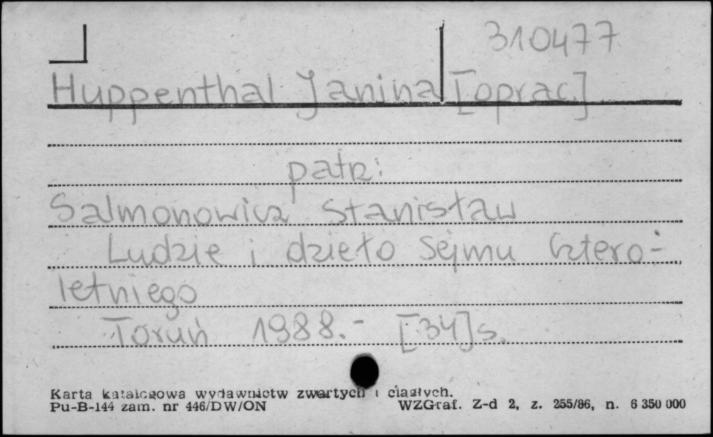 310477
Huppenthal Janina [oprac]
patrz:
Salmonowicz Stanisław
Ludzie i dzieło Sejmu Cztero-
letniego
Toruń 1988.- [34]s.
Karta katalogowa wydawnictw zwartych i ciągłych.
Pu-B-144 zam. nr 446/DW/ON WZGraf. Z-d 2, z. 255/86, n. 6 350 000